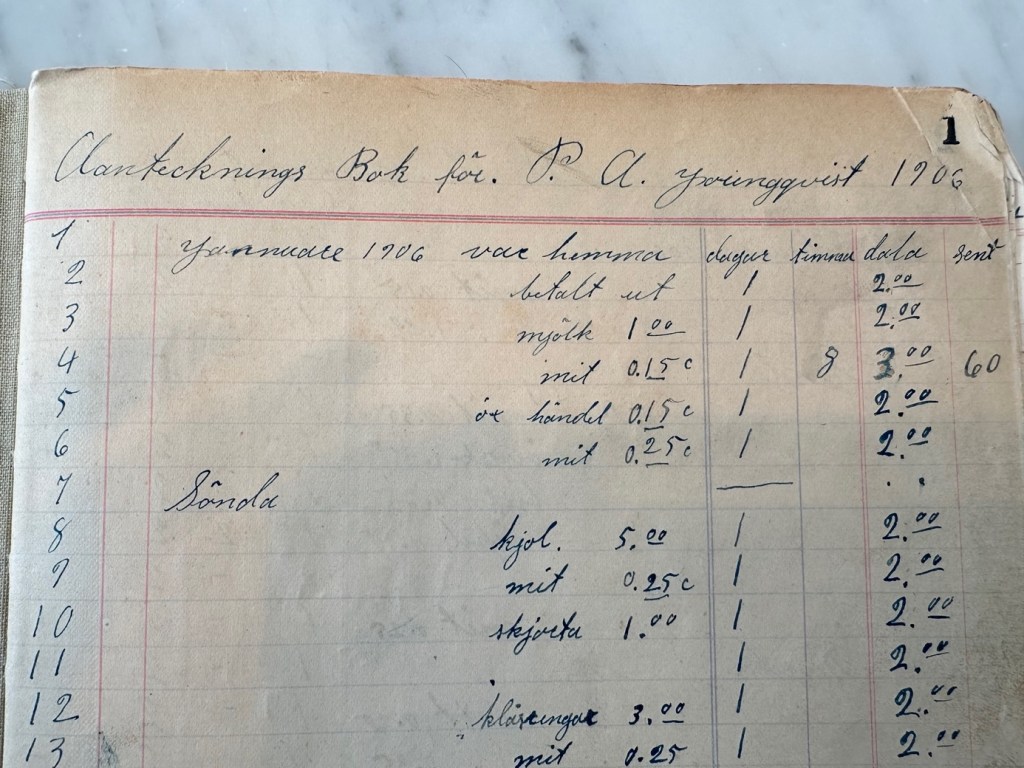 1
Aantecknings Bok för. P. A. youngqvist 1906
1 yannuare 1906 var hemma dagar timmar dala sent
2 betalt ut 1 2.00
3 mjölk 1 00 1 2.00
4 mit 0.15 c 1 8 3.00 60
5 händel 0.15 c 1 2.00
6 mit 0.25 c 1 2.00
7 Sönda — . .
8 kjol. 5.00 1 2.00
9 mit 0.25 c 1 2.00
10 skjorta 1.00 1 2.00
11 1 2.00
12 3.00 1 2.00
13 mit 0.25 1 2.00